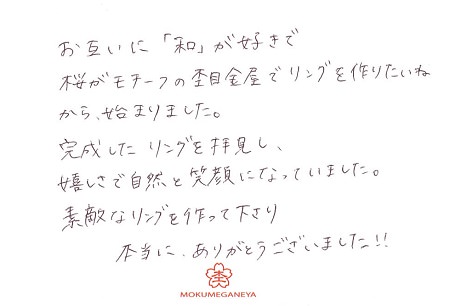 お互いに「和」が好きで
桜がモチーフの杢目金屋でリングを作りたいね
から、始まりました。
完成したリングを拝見し、
嬉しさで自然と笑顔になっていました。
素敵なリングを作って下さり
本当に、ありがとうございました!!
杢
MOKUMEGANEYA